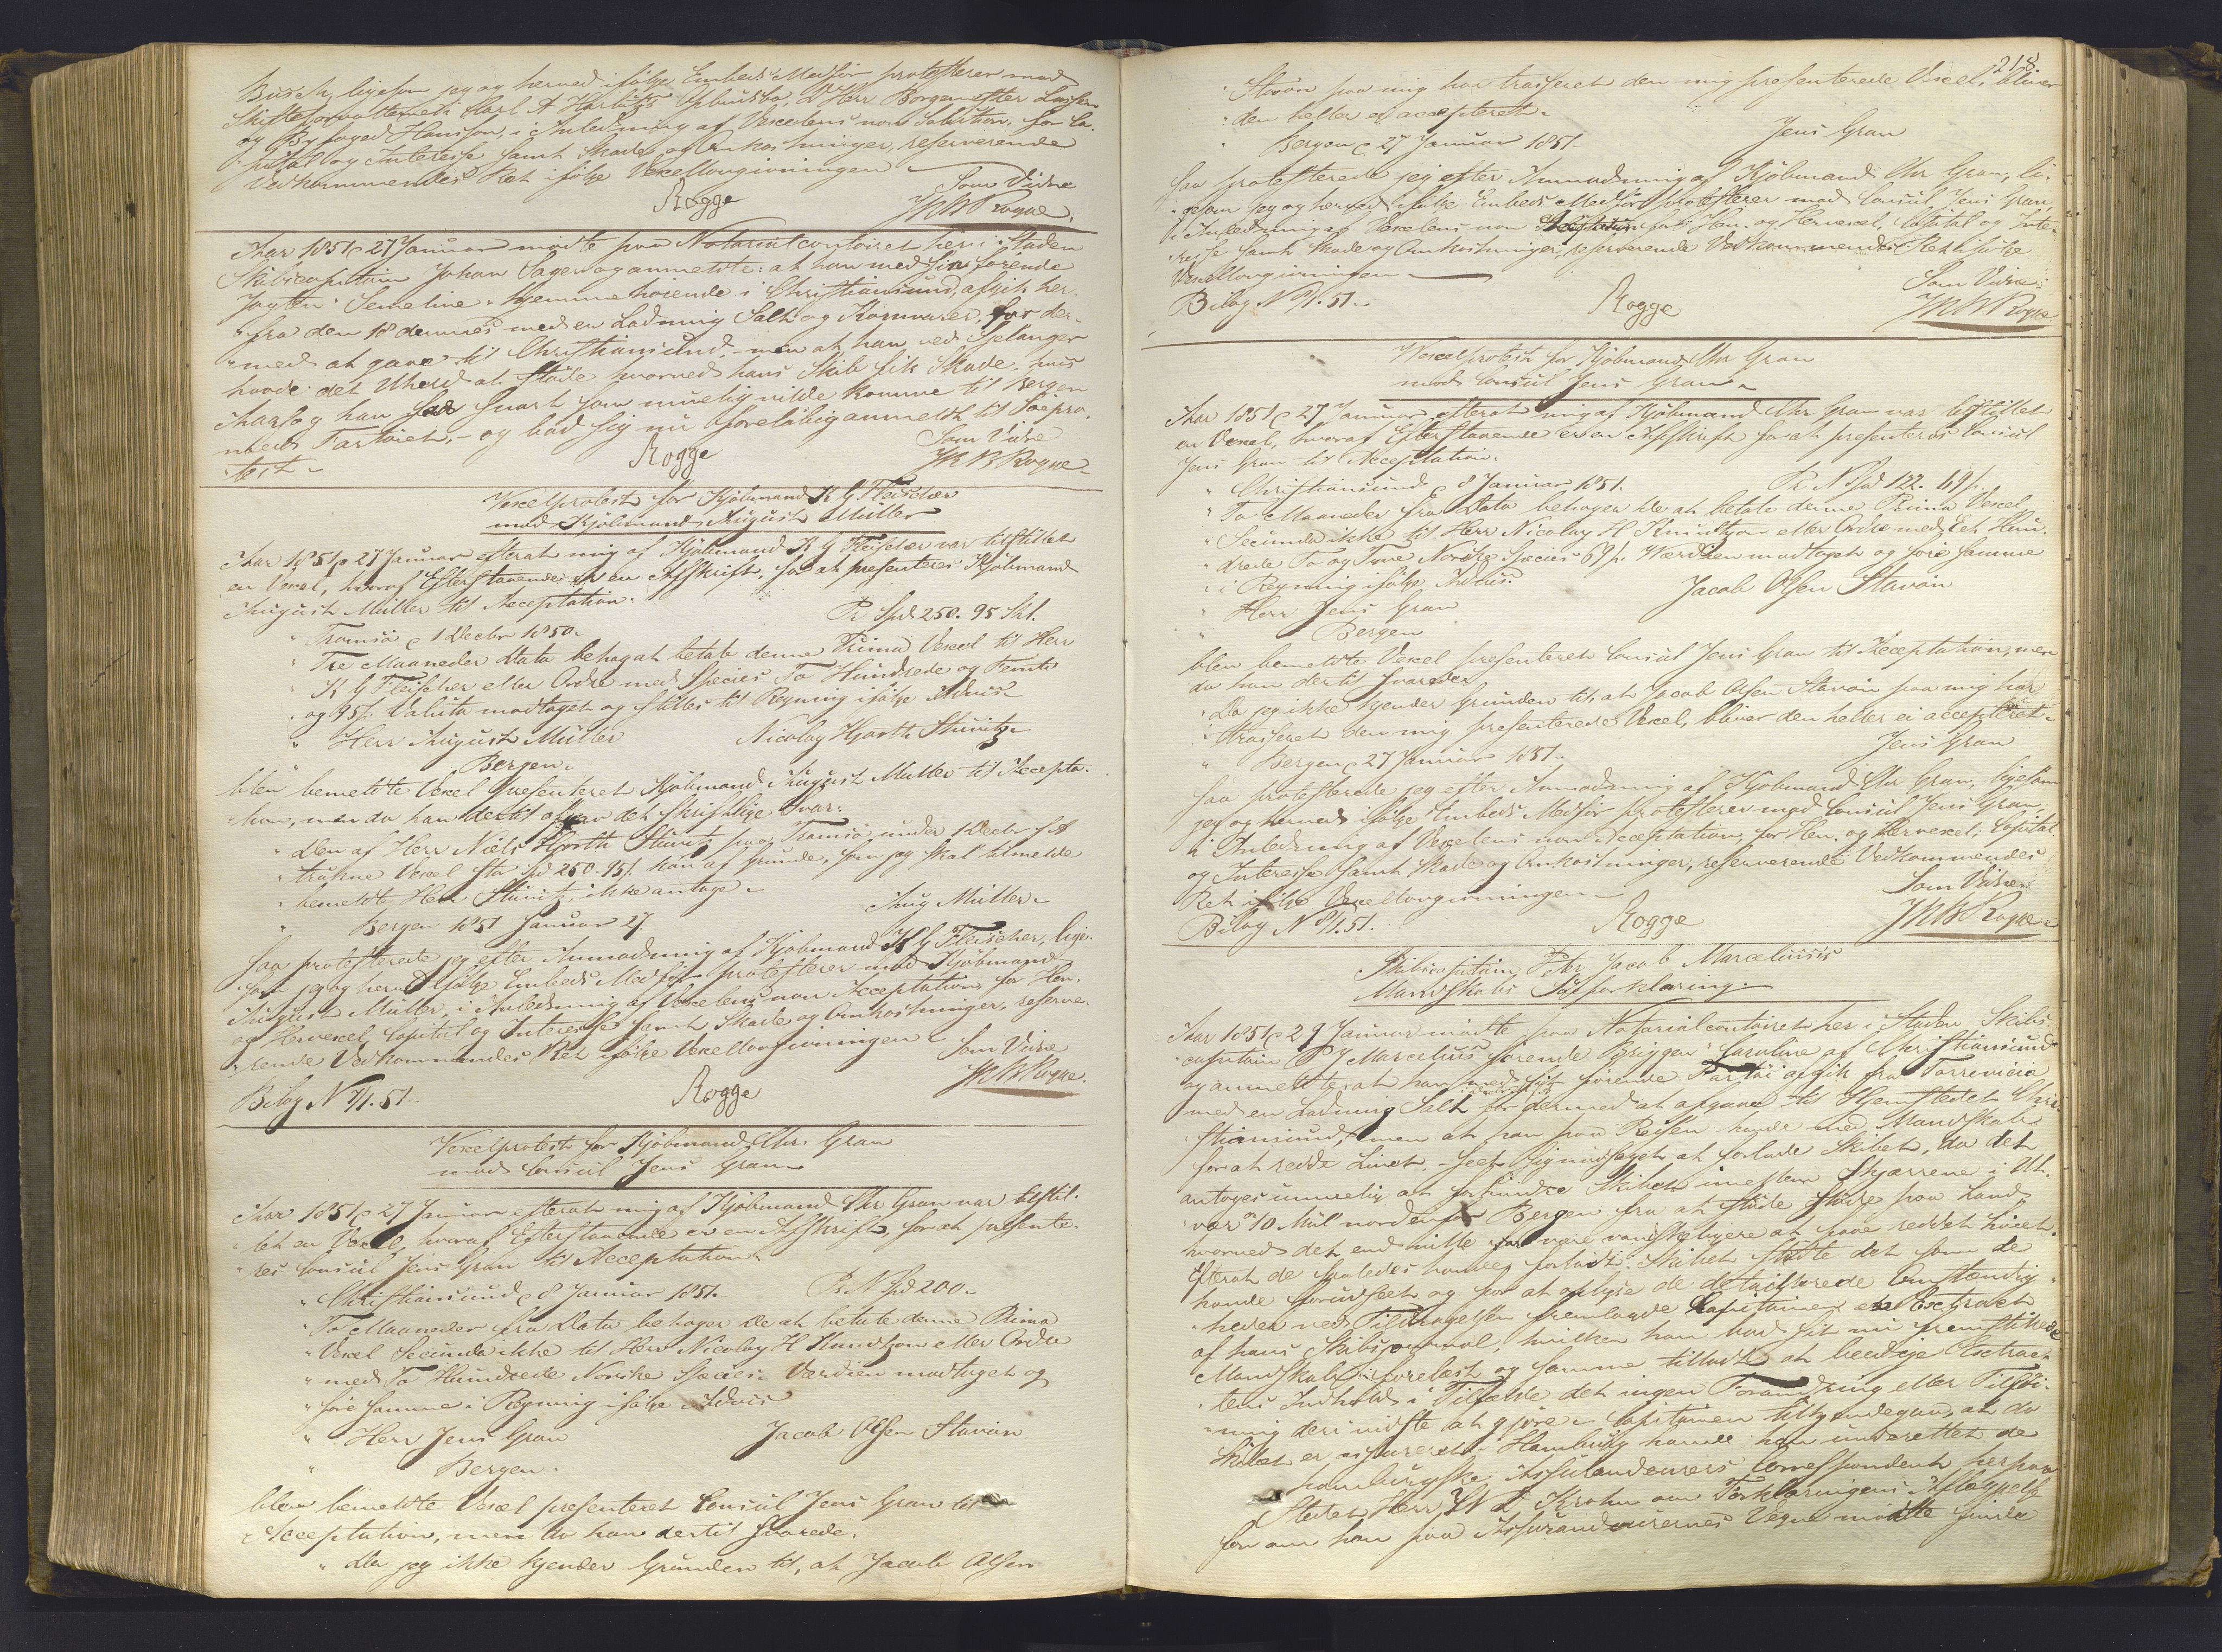 Busch, ligesom jeg og herved ifølge Embeds Medfør protesterer mod
Skifteforvalterne i Carl A Herlitz's Opbudsbo, D'Herr Borgermester
og Byfoged Hansson, i Anledning af Vexelens non Solution, for Ca-
pital og Interesse samt Skade og Omkostninger, reserverende
Vedkommendes Ret ifølge Vexellovgivningen.
Rogge Som Vidne
Aar 1851 27 Januar mødte paa Notarialcontoiret her i Staden
Skibscapitain Johan Sager og anmeldte: at han med sin førende
Jagten "Semeline" hjemmehørende i Christiansund, afgik her-
"fra den 18 dennes med en Ladning Salt og Kornvarer, for der-
"med at gaae til Christiansund, - men at han ved
havde det Uheld at støde hvorved hans Skib fik Skade, hvis
Aarsag han saa snart som muelig vilde komme til Bergen
med Fartøiet, - og bad sig nu foreløbig anmeldt til Søepro-
test.
Rogge Som Vidne
Vexelprotest for Kjøbmand K G Fleischer
mod Kjøbmand August Müller
Aar 1851 27 Januar efterat mig af Kjøbmand K G Fleischer var tilstillet
en Vexel, hvoraf Efterstaaende er en Afskrift, for at presenteres Kjøbmand
August Müller til Acceptation.
" Tromsø 1 Decbr 1850. Pr Spd 250. 95 Skl.
" Tre Maaneder Dato behag at betale denne Prima Vexel til Herr
" K G Fleischer eller Ordre med Species To Hundrede og Femti
" og 95 s. Valuta modtaget og stilles til Regning ifølge Advis
" Herr August Müller Nicolay Hjorth Stünitz
" Bergen.
blev bemeldte Vexel presenteret Kjøbmand August Müller til Accepta-
tion, men da han dertil afgav det skriftlige Svar:
" Den af Herr Niels Hjorth Stünitz paa Tromsø under 1 Decbr f A
" trukne Vexel sto Spd 250. 95 s. kan af Grunde, som jeg skal tilmelde
" bemeldte Herr Stünitz, ikke antage.
" Bergen 1851 Januar 27. Aug Müller
saa protesterede jeg efter Anmodning af Kjøbmand K G Fleischer, lige-
som jeg og herved ifølge Embeds Medfør protesterer mod Kjøbmand
August Müller, i Anledning af Vexelens non Acceptation for Hen-
og Hervexel, Capital og Interesse samt Skade og Omkostninger, reserve-
rende Vedkommendes Ret ifølge Vexellovgivningen.
Bilag N 7/1.51. Rogge Som Vidne
Vexelprotest for Kjøbmand Chr. Gran
mod Consul Jens Gran
Aar 1851 27 Januar efterat mig af Kjøbmand Chr Gran var tilstil-
let en Vexel, hvoraf Efterstaaende er en Afskrift, for at presente-
res Consul Jens Gran til Acceptation.
" Christiansund 8 Januar 1851. Pr N Spd 200.
" To Maaneder fra Dato behager De at betale denne Prima
" Vexel Secunda ikke til Herr Nicolay H Knudtzon eller Ordre
" med To Hundrede Norske Species. Værdien modtaget og
" føre samme i Regning ifølge Advis
" Herr Jens Gran Jacob Olsen Stavøn
" Bergen.
blev bemeldte Vexel presenteret Consul Jens Gran til
Acceptation, men da han dertil svarede.
" Da jeg ikke kjender Grunden til, at Jacob Olsen
218.
" Stavøn paa mig har traseret den mig presenterede Vexel, bliver
" den heller ei accepteret.
" Bergen 27 Januar 1851. Jens Gran
saa protesterede jeg efter Anmodning af Kjøbmand Chr Gran, li-
gesom jeg og herved ifølge Embeds Medfør protesterer mod Consul Jens Gran,
i Anledning af Vexelens non Acceptation for Hen- og Hervexel, Capital og Inte-
resse samt Skade og Omkostninger, reserverende Vedkommendes Ret ifølge
Vexellovgivningen.
Bilag N 9/1.51. Rogge Som Vidne
Vexelprotest for Kjøbmand Chr Gran
mod Consul Jens Gran
Aar 1851 27 Januar efterat mig af Kjøbmand Chr Gran var tilstillet
en Vexel, hvoraf Efterstaaende er en Afskrift for at presenteres Consul
Jens Gran til Acceptation.
" Christiansund 8 Januar 1851. Pr N Spd 122. 69 s.
" To Maaneder fra Dato behager De at betale denne Prima Vexel
" Secunda ikke til Herr Nicolay H Knudtzon eller Ordre med Eet Hun-
" drede To og Tyve Norske Species 69 s. Værdien modtaget og føre samme
" i Regning ifølge Advis. Jacob Olsen Stavøn
" Herr Jens Gran
" Bergen
blev bemeldte Vexel presenteret Consul Jens Gran til Acceptation, men
da han dertil svarede
" Da jeg ikke kjender Grunden til, at Jacob Olsen Stavøn paa mig har
" traseret den mig presenterede Vexel, bliver den heller ei accepteret.
" Bergen 27 Januar 1851. Jens Gran
saa protesterede jeg efter Anmodning af Kjøbmand Chr Gran, ligesom
jeg og herved ifølge Embeds Medfør protesterer mod Consul Jens Gran,
i Anledning af Vexelens non Acceptation, for Hen- og Hervexel, Capital
og Interesse samt Skade og Omkostninger, reserverende Vedkommendes
Ret ifølge Vexellovgivningen.
Bilag N 8/1.51. Rogge Som Vidne
Skibscapitain Peter Jacob Marcelius's
Mandskabs Søeforklaring.
Aar 1851 29 Januar mødte paa Notarialcontoiret her i Staden Skibs-
capitain P J Marcelius førende Briggen "Caroline" af Christiansund
og anmeldte at han med sit førende Fartøi afgik fra Torrevieia
med en Ladning Salt for dermed at afgaae til Hjemstedet Chri-
stiansund, men at han paa Reisen havde med Mandskabet
for at redde Livet, - seet sig nødsaget at forlade Skibet, da det
antoges umuelig at forhindre Skibet imellem Skjærrene i Ut-
vær 10 Miil nordenfor Bergen fra at støde paa Land
hvorved det end vilde være vanskeligere at faae reddet Livet.
Efterat de saaledes havde forladt Skibet skede det som de
havde forudseet og for at oplyse de detaillerede Omstændig-
heder ved Tildragelsen fremlagde Capitainen et Extract
af hans Skibsjournal, hvilken han bad sit nu fremstillede
Mandskab forelæst og samme tilladt at beedige Extrac-
tens Indhold i Tilfælde det ingen Forandring eller Tilføi-
ning deri vidste at gjøre. Capitainen tilkjendegav, at da
Skibet er assureret i Hamburg havde han underrettet de
hamburgske Assurandeurers Correspondent herpaa
Stedet Herr W D Krohn om Forklaringens Aflæggelse
for om han paa Assurandeurernes Vegne maatte finde